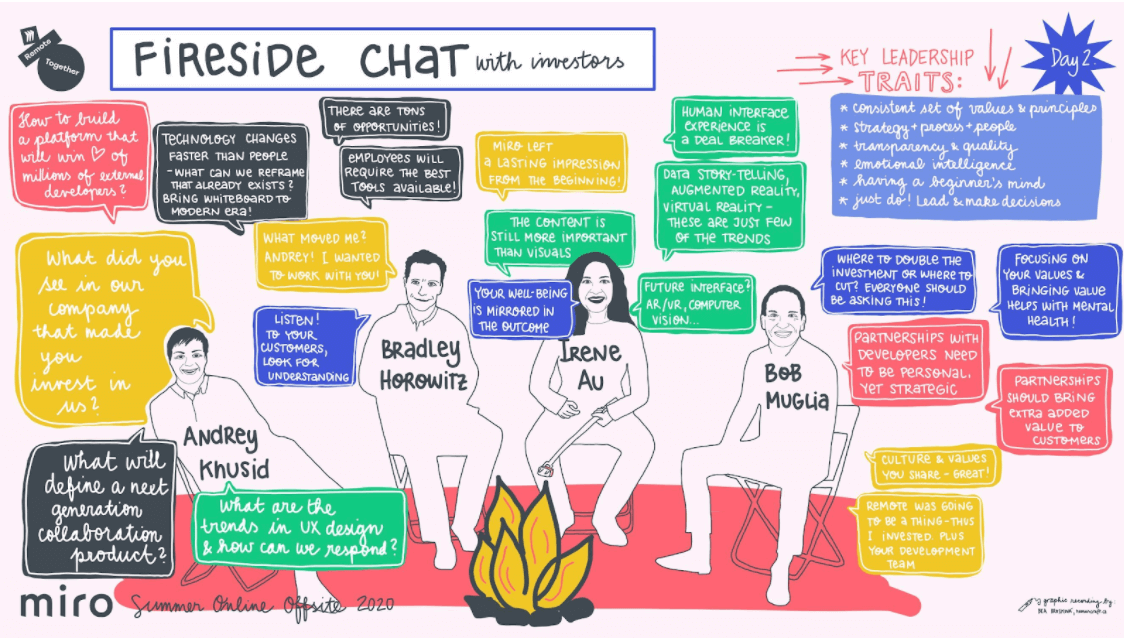 Remote
Together
FiRESiDE CHaT with investors
KEY LEADERSHIP
TRAITS:
Day 2.
* consistent set of values & principles
* strategy + process + people
* transparency & quality
* emotional intelligence
* having a beginner's mind
* just do! Lead & make decisions
How to build
a platform that
will win ♡ of
millions of external
developers?
TECHNOLOGY CHANGES
FASTER THAN PEOPLE
- WHAT CAN WE REFRAME
THAT ALREADY EXISTS?
BRING WHITEBOARD TO
MODERN ERA!
THERE ARE TONS
OF OPPORTUNITIES!
EMPLOYEES WILL
REQUIRE THE BEST
TOOLS AVAILABLE!
MIRO LEFT
A LASTING IMPRESSION
FROM THE BEGINNING!
HUMAN INTERFACE
EXPERIENCE IS
A DEAL BREAKER!
DATA STORY-TELLING,
AUGMENTED REALITY,
VIRTUAL REALITY -
THESE ARE JUST FEW
OF THE TRENDS
What did you
see in our
company
that made
you
invest in
us?
WHAT MOVED ME?
ANDREY! I WANTED
TO WORK WITH YOU!
THE CONTENT IS
STILL MORE IMPORTANT
THAN VISUALS
LISTEN!
TO YOUR
CUSTOMERS,
LOOK FOR
UNDERSTANDING
YOUR WELL-BEING
IS MIRRORED IN
THE OUTCOME
FUTURE INTERFACE?
AR/VR, COMPUTER
VISION...
WHERE TO DOUBLE THE
INVESTMENT OR WHERE TO
CUT? EVERYONE SHOULD
BE ASKING THIS!
FOCUSING ON
YOUR VALUES &
BRINGING VALUE
HELPS WITH MENTAL
HEALTH!
PARTNERSHIPS WITH
DEVELOPERS NEED
TO BE PERSONAL,
YET STRATEGIC
PARTNERSHIPS
SHOULD BRING
EXTRA ADDED
VALUE TO
CUSTOMERS
ANDREY
KHUSID
BRADLEY
HOROWITZ
IRENE
AU
BOB
MUGLIA
What will
define a next
generation
collaboration
product?
What are the
trends in UX design
& how can we respond?
CULTURE & VALUES
YOU SHARE - GREAT!
REMOTE WAS GOING
TO BE A THING - THUS
I INVESTED. PLUS
YOUR DEVELOPMENT
TEAM
miro Summer Online Offsite 2020
graphic recording by: